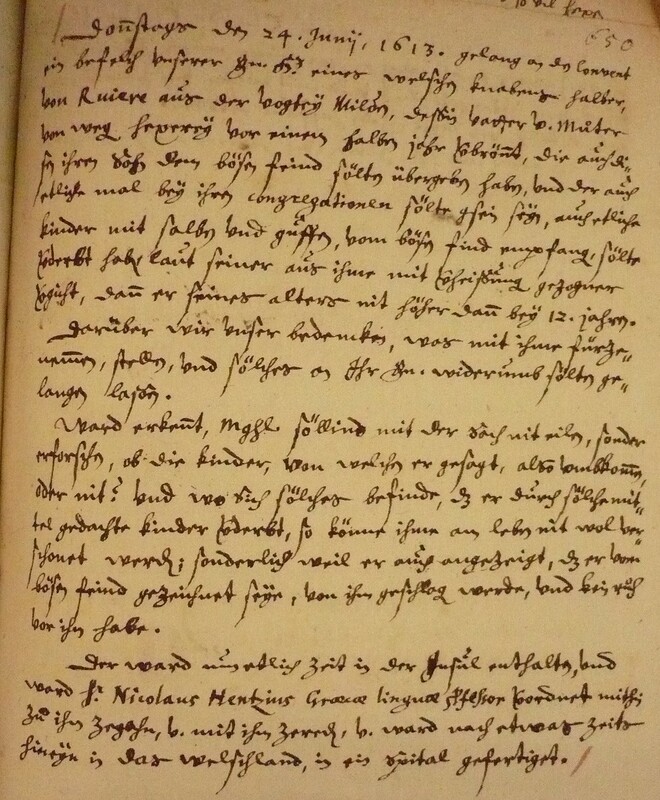 so vil hexe
650
Donstags den 24. Junij, 1613. gelang an dz Convent
ein befelch unserer Gn. H. eines welschen knabens halber,
von Ruiere aus der vogtey Milden, dessen vatter v. Muter
von weg hexerey vor einem halben jahr vbrönt, die auch di-
sen ihren Sohn dem bösen feind sölten übergeben haben, und der auch
etliche mal bey ihren congregationen sölte gsein seyn, auch etliche
kinder mit salben und güffen, vom bösen find empfang, sölte
vderbt hab laut seiner aus ihme mit vheissung gezogner
vgicht, dann er seines alters nit höher dann bey 12. jahren.
Darüber wir unser bedencken, was mit ihme fürze-
nemmen, stellen, und sölches an Ihr Gn. widerumb sölten ge-
langen lassen.
Ward erkennt, Mghl. söllind mit der Sach nit eilen, sonder
erforschen, ob die kinder, von welchen er gesagt, also umbkommen,
oder nit? Und wo sich sölches befinde, dz er durch sölche mit-
tel gedachte kinder vderbt, so könne ihme am leben nit wol ver-
schonet werd; sonderlich weil er auch angezeigt, dz er vom
bösen feind gezeichnet seye, von ihm geschlag werde, und kein ruh
vor ihm habe.
Der ward nun etlich zeit in der Insul enthalten, und
ward Hr. Nicolaus Hentzius Graecae linguae Pfessor vordnet mithin
zu ihm zegahn, v. mit ihm zered, v. ward nach etwas zeits
hineyn in das welschland, in ein spital gefertiget.